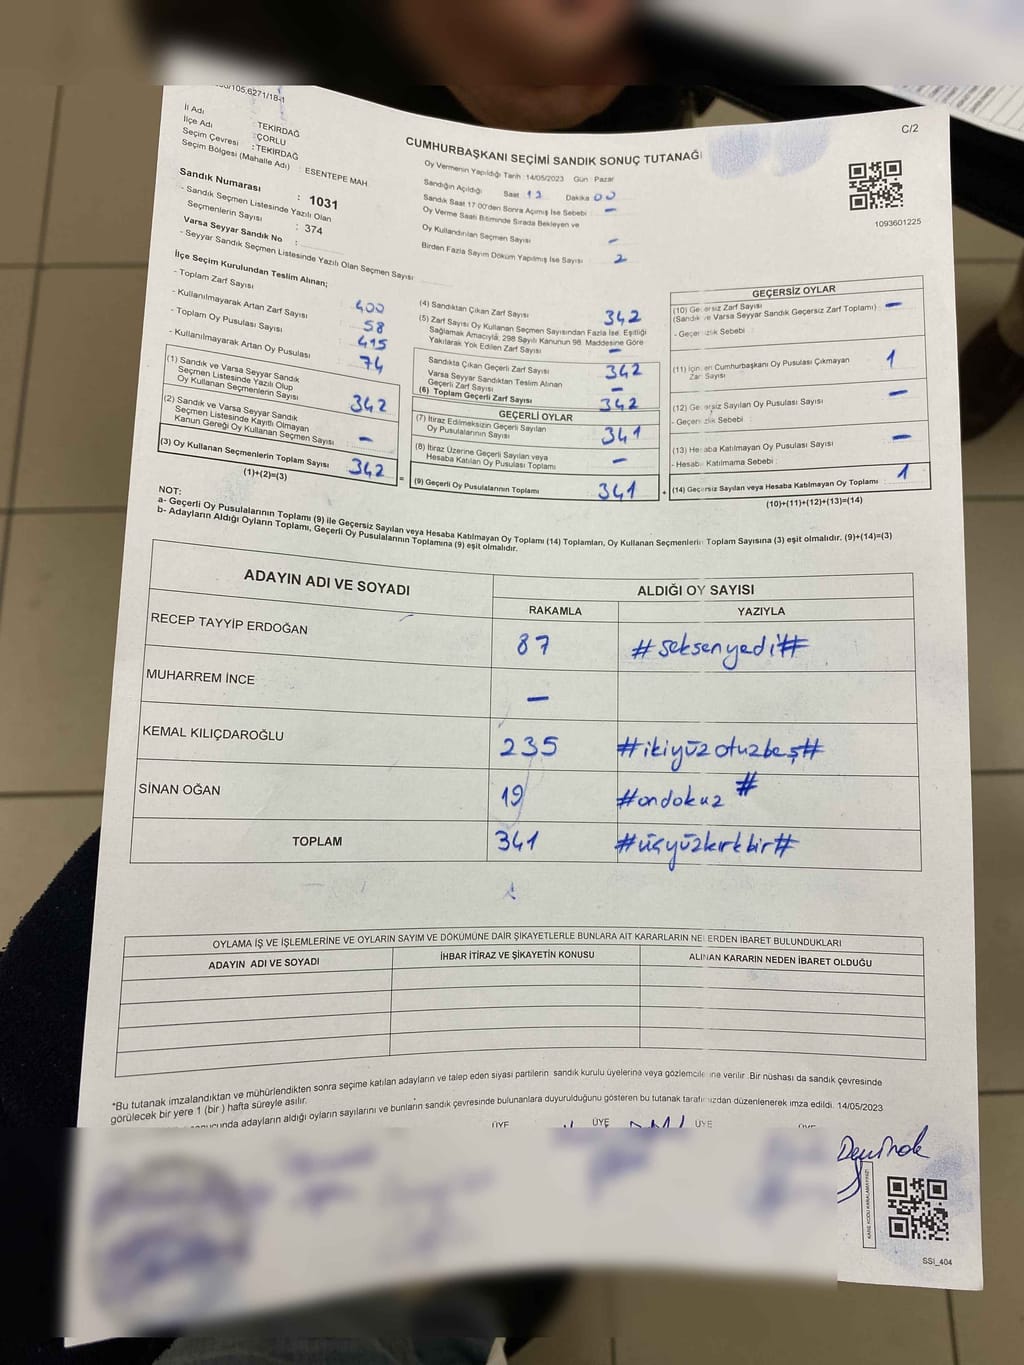 105.6271/18-1
C/2
İl Adı : TEKİRDAĞ
İlçe Adı : ÇORLU
Seçim Çevresi : TEKİRDAĞ
Seçim Bölgesi (Mahalle Adı) : ESENTEPE MAH.
CUMHURBAŞKANI SEÇİMİ SANDIK SONUÇ TUTANAĞI
Oy Vermenin Yapıldığı Tarih : 14/05/2023 Gün : Pazar
Sandığın Açıldığı Saat Dakika 00
Sandık Saat 17:00'den Sonra Açımış İse Sebebi –
Oy Verme Saati Bitiminde Sırada Bekleyen ve
Oy Kullandırılan Seçmen Sayısı –
Birden Fazla Sayım Döküm Yapılmış İse Sayısı 2
1093601225
Sandık Numarası : 1031
- Sandık Seçmen Listesinde Yazılı Olan
Seçmenlerin Sayısı : 374
Varsa Seyyar Sandık No :
- Seyyar Sandık Seçmen Listesinde Yazılı Olan Seçmen Sayısı :
İlçe Seçim Kurulundan Teslim Alınan;
- Toplam Zarf Sayısı 400
- Kullanılmayarak Artan Zarf Sayısı 58
- Toplam Oy Pusulası Sayısı 415
- Kullanılmayarak Artan Oy Pusulası 74
(1) Sandık ve Varsa Seyyar Sandık
Seçmen Listesinde Yazılı Olup
Oy Kullanan Seçmenlerin Sayısı 342
(2) Sandık ve Varsa Seyyar Sandık
Seçmen Listesinde Kayıtlı Olmayan
Kanun Gereği Oy Kullanan Seçmen Sayısı –
(3) Oy Kullanan Seçmenlerin Toplam Sayısı 342
(1)+(2)=(3)
(4) Sandıktan Çıkan Zarf Sayısı 342
(5) Zarf Sayısı Oy Kullanan Seçmen Sayısından Fazla İse, Eşitliği
Sağlamak Amacıyla; 298 Sayılı Kanunun 98. Maddesine Göre
Yakılarak Yok Edilen Zarf Sayısı –
Sandıkta Çıkan Geçerli Zarf Sayısı 342
Varsa Seyyar Sandıktan Teslim Alınan
Geçerli Zarf Sayısı –
(6) Toplam Geçerli Zarf Sayısı 342
GEÇERLİ OYLAR
(7) İtiraz Edilmeksizin Geçerli Sayılan
Oy Pusulalarının Sayısı 341
(8) İtiraz Üzerine Geçerli Sayılan veya
Hesaba Katılan Oy Pusulası Toplamı –
= (9) Geçerli Oy Pusulalarının Toplamı 341 +
GEÇERSİZ OYLAR
(10) Geçersiz Zarf Sayısı
(Sandık ve Varsa Seyyar Sandık Geçersiz Zarf Toplamı) –
- Geçersizlik Sebebi :
(11) İçinden Cumhurbaşkanı Oy Pusulası Çıkmayan
Zarf Sayısı 1
(12) Geçersiz Sayılan Oy Pusulası Sayısı –
- Geçersizlik Sebebi :
(13) Hesaba Katılmayan Oy Pusulası Sayısı –
- Hesaba Katılmama Sebebi :
(14) Geçersiz Sayılan veya Hesaba Katılmayan Oy Toplamı : 1
(10)+(11)+(12)+(13)=(14)
NOT:
a- Geçerli Oy Pusulalarının Toplamı (9) ile Geçersiz Sayılan veya Hesaba Katılmayan Oy Toplamı (14) Toplamları, Oy Kullanan Seçmenlerin Toplam Sayısına (3) eşit olmalıdır. (9)+(14)=(3)
b- Adayların Aldığı Oyların Toplamı, Geçerli Oy Pusulalarının Toplamına (9) eşit olmalıdır.
ADAYIN ADI VE SOYADI ALDIĞI OY SAYISI
RAKAMLA YAZIYLA
RECEP TAYYİP ERDOĞAN 87 #seksenyedi#
MUHARREM İNCE –
KEMAL KILIÇDAROĞLU 235 #ikiyüzotuzbeş#
SİNAN OĞAN 19 #ondokuz#
TOPLAM 341 #üçyüzkırkbir#
OYLAMA İŞ VE İŞLEMLERİNE VE OYLARIN SAYIM VE DÖKÜMÜNE DAİR ŞİKAYETLERLE BUNLARA AİT KARARLARIN NELERDEN İBARET BULUNDUKLARI
ADAYIN ADI VE SOYADI İHBAR İTİRAZ VE ŞİKAYETİN KONUSU ALINAN KARARIN NEDEN İBARET OLDUĞU
*Bu tutanak imzalandıktan ve mühürlendikten sonra seçime katılan adayların ve talep eden siyasi partilerin sandık kurulu üyelerine veya gözlemcilerine verilir. Bir nüshası da sandık çevresinde
görülecek bir yere 1 (bir) hafta süreyle asılır.
adayların aldığı oyların sayılarını ve bunların sandık çevresinde bulunanlara duyurulduğunu gösteren bu tutanak tarafımızdan düzenlenerek imza edildi. 14/05/2023
ÜYE ÜYE ÜYE
KARE KODU KARALAMAYINIZ!
SSİ_404